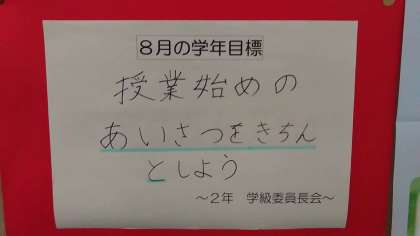 8月の学年目標
授業始めの
あいさつをきちん
としよう
～2年 学級委員長会～